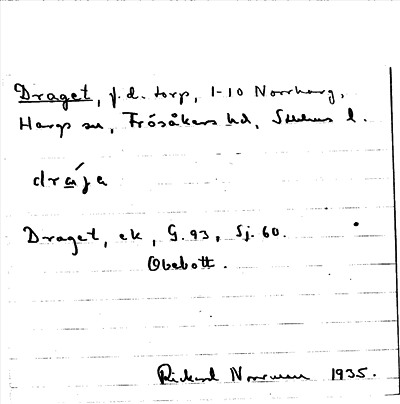 Draget, f.d. torp, 1-10 Norrharg,
Hargs sn, Frösåkers hd, Sthlms l.
dra´ja
Draget, ek, G. 93, Sj. 60.
Obebott.
Rickard 1935.